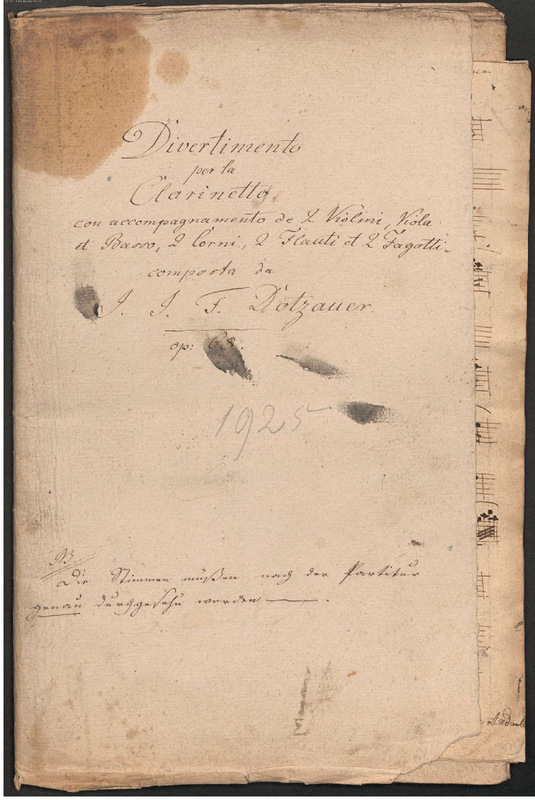 Divertimento
per la
Clarinetto
con accompagnamento de 2 Violini, Viola
et Basso, 2 Corni, 2 Flauti et 2 Fagotti
composta da
J. J. F. Dotzauer.
op: 68.
1925
NB
Die Stimmen müßen nach der Partitur
genau durchgesehn werden.